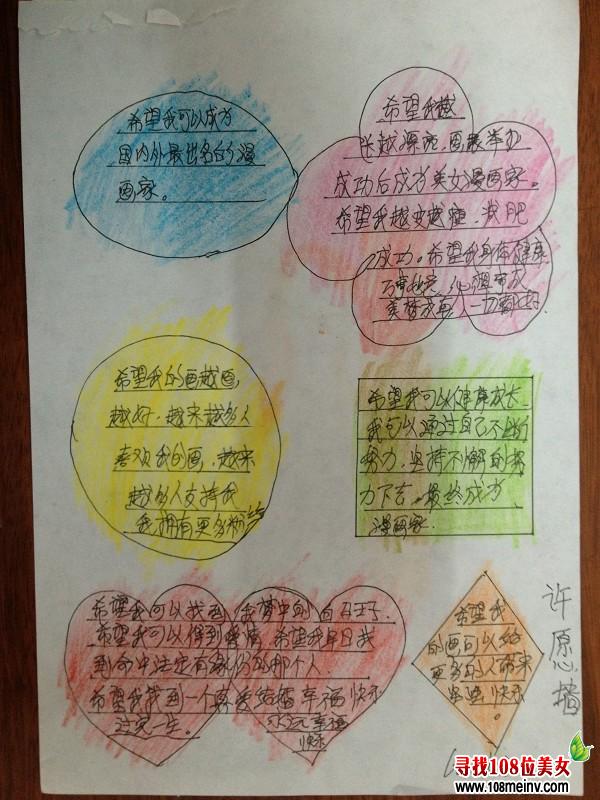 希望我可以成为
国内外最出名的漫
画家。
希望我越
长越漂亮,画展举办
成功后成为美女漫画家。
希望我越变越瘦,减肥
成功。希望我身体健康
万事
美梦成真,一切都好
希望我的画越画
越好,越来越多人
喜欢我的画,越来
越多人支持我
我拥有更多粉丝
希望我可以健康成长
我可以通过自己不断
努力,坚持不懈的努
力下去。最终成为
漫画家。
希望我可以找到我梦中的白马王子。
希望我可以得到爱情 希望我早日找
到命中注定有缘份的那个人
希望我找到一个真爱结婚幸福快乐
过完一生。
永远幸福
快乐
希望我
的画可以给
更多的人带来
快乐。
许愿墙
寻找108位美女
www.108meinv.com